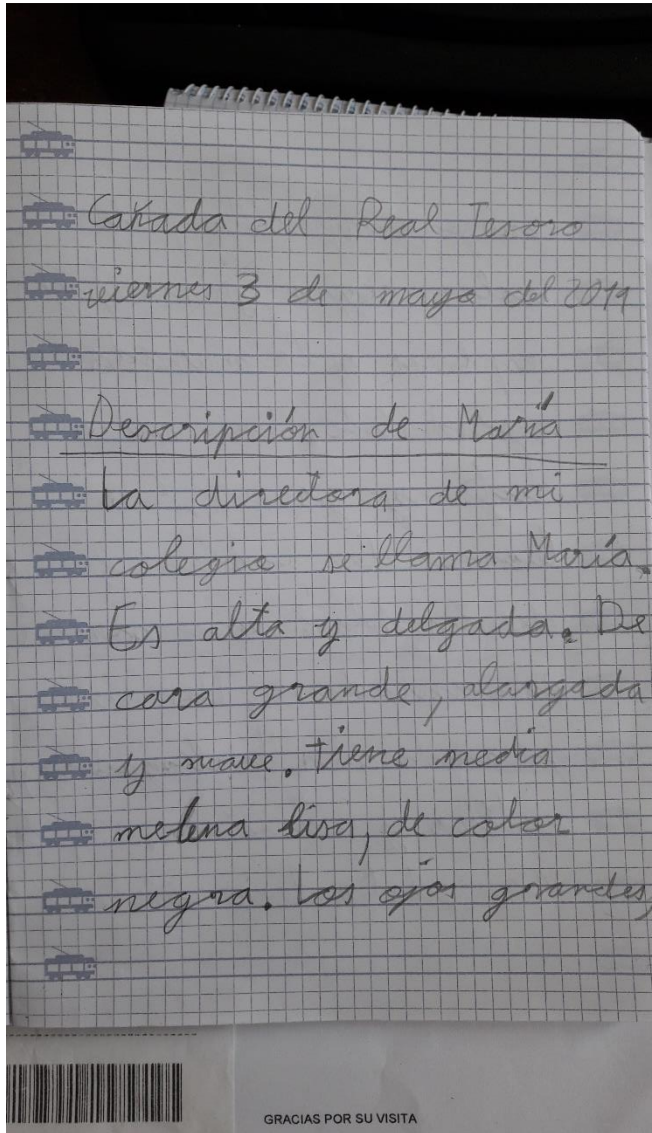 Cañada del Real Tesoro
viernes 3 de mayo del 2019
Descripción de María
La directora de mi
colegio se llama María.
Es alta y delgada. De
cara grande, alargada
y suave. tiene media
melena lisa, de color
negra. Los ojos grandes,
GRACIAS POR SU VISITA